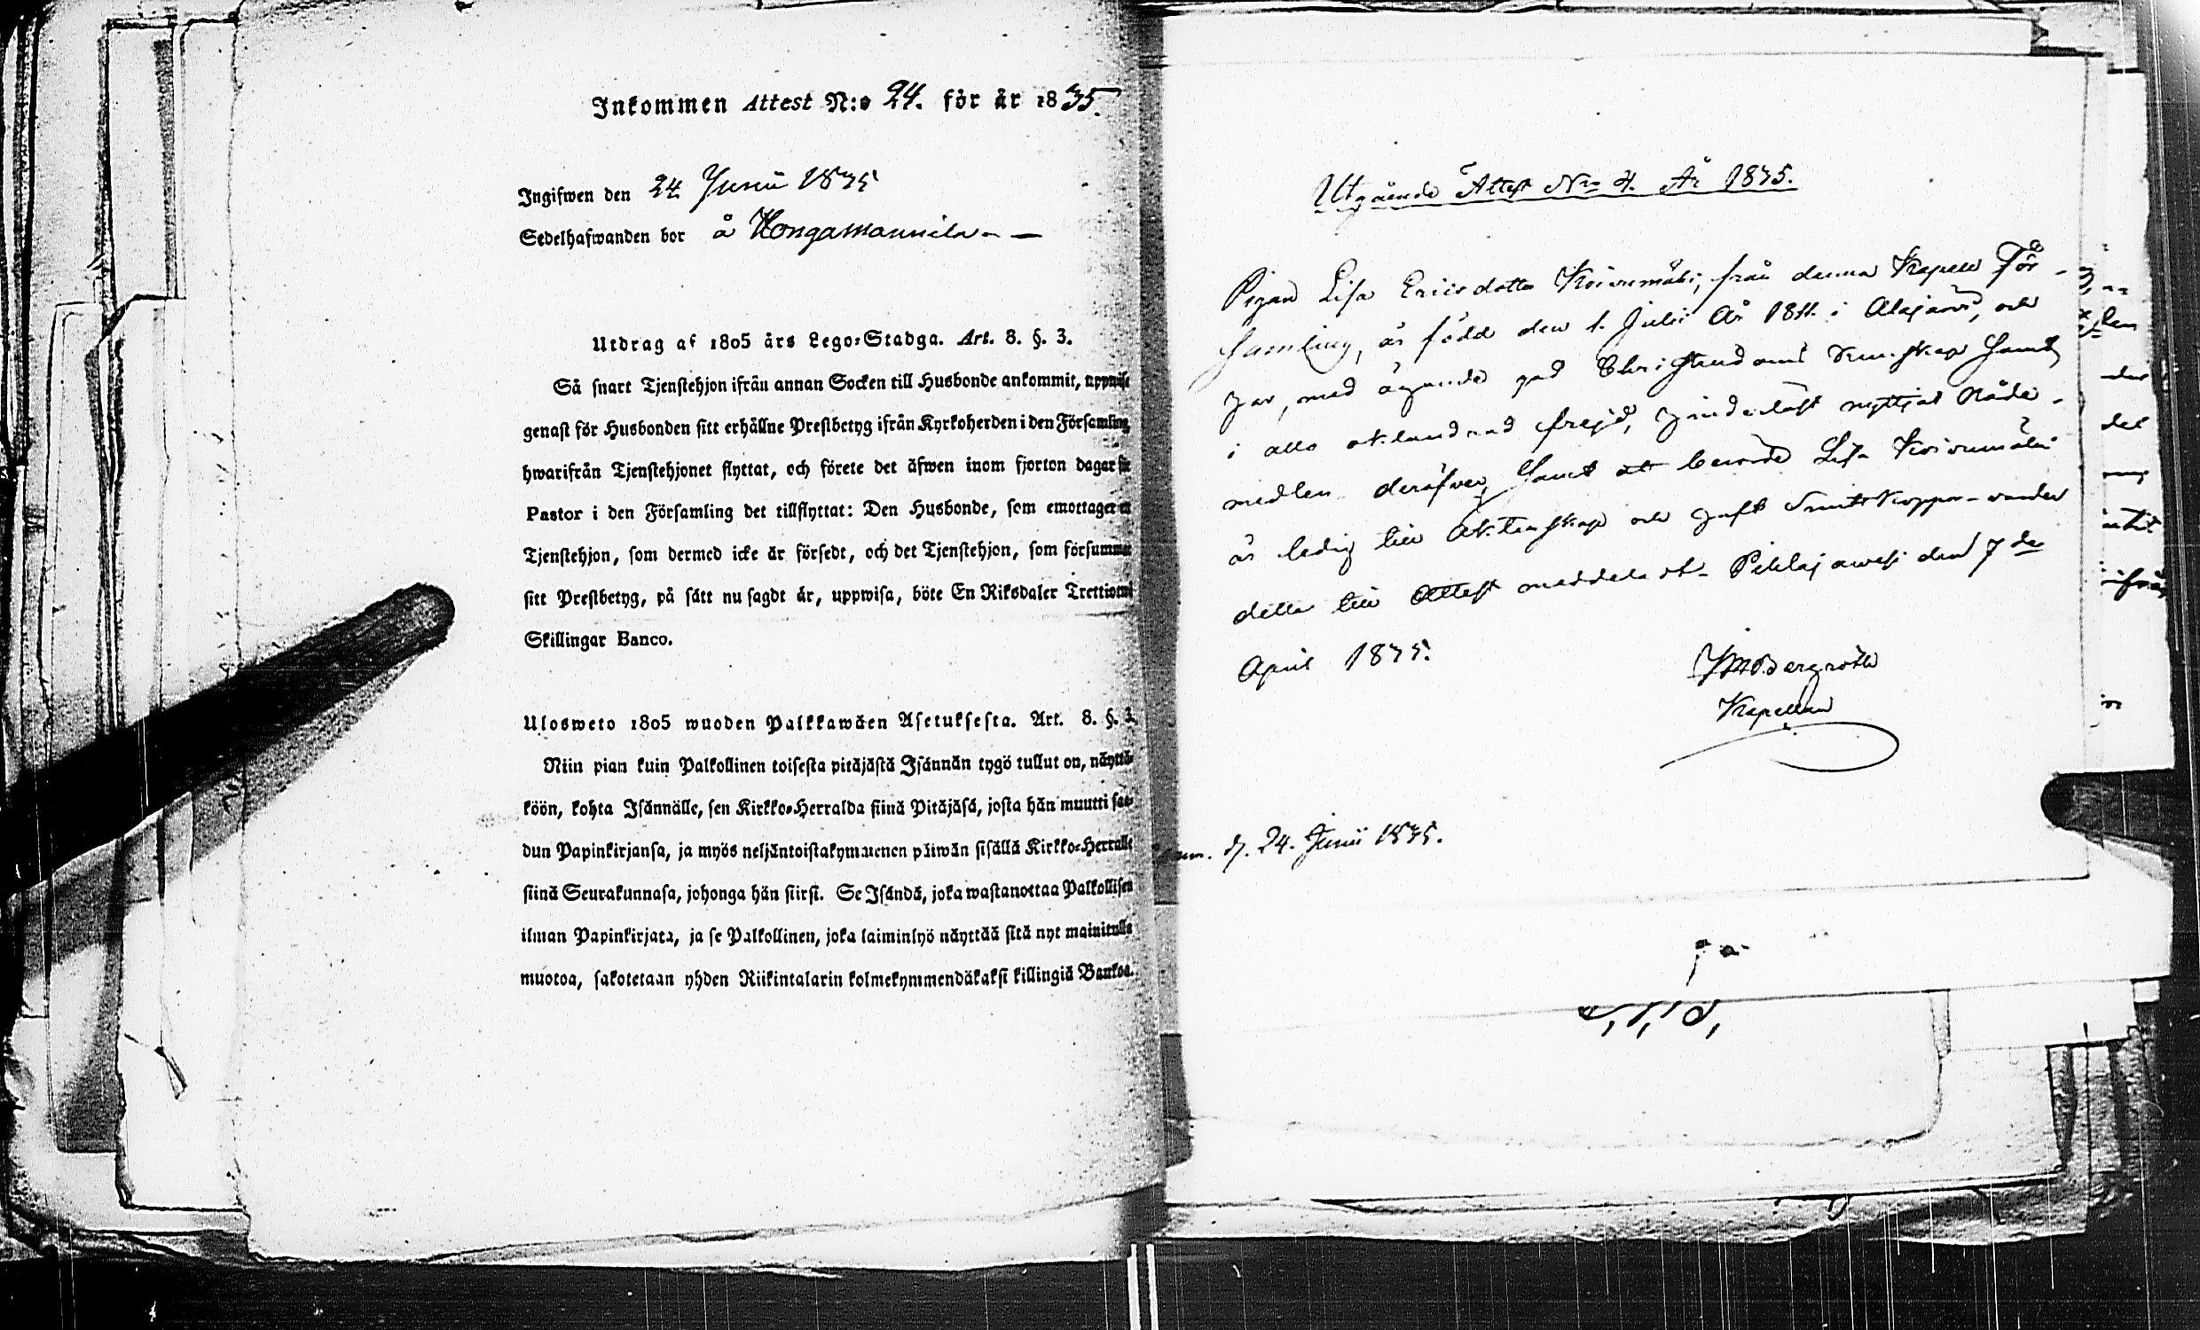 Inkommen Attest N:o 24. för år 1835.
Ingifwen den 24 Junii 1835
Sedelhafwanden bor å Kongamannila
Utdrag af 1805 års Lego-Stadga. Art. 8. §. 3.
Så snart Tjenstehjon ifrån annan Socken till Husbonde ankommit, uppwise
genast för Husbonden sitt erhållne Prestbetyg ifrån Kyrkoherden i den Församling
hwarifrån Tjenstehjonet flyttat, och förete det äfwen inom fjorton dagar för
Pastor i den Församling det tillflyttat: Den Husbonde, som emottager et
Tjenstehjon, som dermed icke är försedt, och det Tjenstehjon, som försummar
sitt Prestbetyg, på sätt nu sagdt är, uppwisa, böte En Riksdaler Trettiotwå
Skillingar Banco.
Ulosweto 1805 wuoden Palkkawäen Asetuksesta. Art. 8. §. 3.
Niin pian kuin Palkollinen toisesta pitäjästä Isännän tygö tullut on, näyttä-
köön, kohta Isännälle, sen Kirkko-Herralda siinä Pitäjäsä, josta hän muutti saa-
dun Papinkirjansa, ja myös neljäntoistakymmenen päiwän sisällä Kirkko-Herralle
siinä Seurakunnasa, johonga hän siirsi. Se Isändä, joka wastanottaa Palkollisen
ilman Papinkirjata, ja se Palkollinen, joka laiminlyö näyttää sitä nyt mainitulla
muotoa, sakotetaan yhden Riikintalarin kolmekymmendäkaksi killingiä Bankoa.
Utgående Attest N:o 4. År 1835.
Pigan Lisa Ericsdotter Koivumäki, från denna Kapell För-
samling, är född den 1. Julii År 1811. i Alajärvi, och
har, med ägande god Christendoms kunskap samt
i allo oklandrad frejd, hinderlöst nyttjat Nåde-
medlen derstädes, samt att berörde Lisa Koivumäki
är ledig till Äktenskap och haft Smittkoppor warder
detta till Attest meddeladt. Pihlajawesi den 7de
April 1835.
Bergroth
Kapellan
d. 24. Junii 1835.